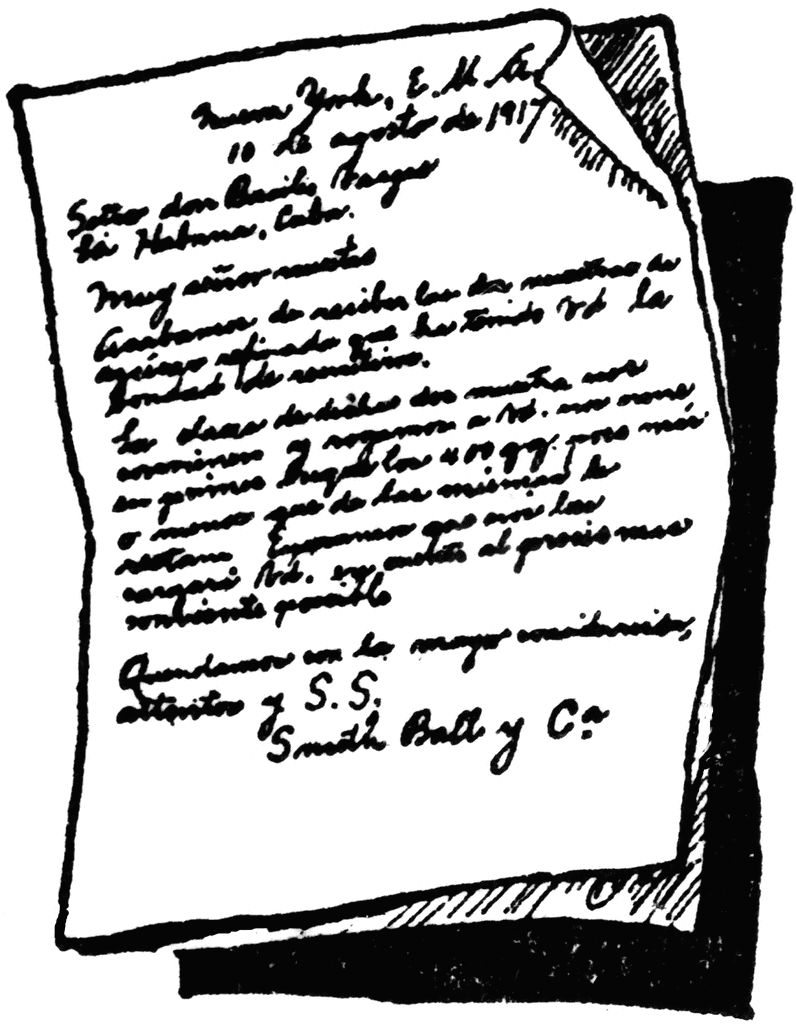 Nueva York, E. U. A.
10 de agosto de 1917
Señor don Basilio Vargas
La Habana, Cuba.
Muy señor nuestro
Acabamos de recibir las dos muestras de
azúcar refinado que ha tenido Vd la
bondad de remitirnos.
La clase de dichas dos muestra nos
convienen y rogamos a Vd. nos
en primer los 400 qq. poco más
o menos que de las mismas le
restan. Esperamos que nos los
cargará Vd. en cuenta al precio mas
conveniente posible
Quendamos con la mayor consideración,
attentos y S. S.
Smith Ball y Cª